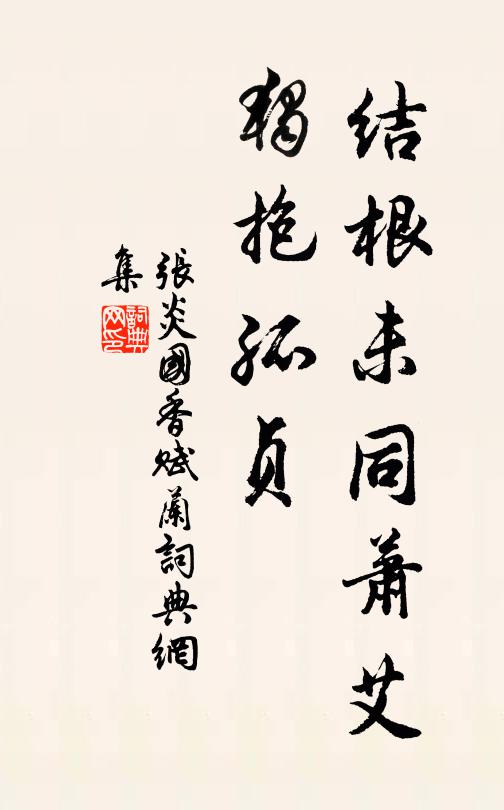 结根未同萧艾
獨抱孤贞
張炎國香賦蘭詞典網
集
詞典
网印